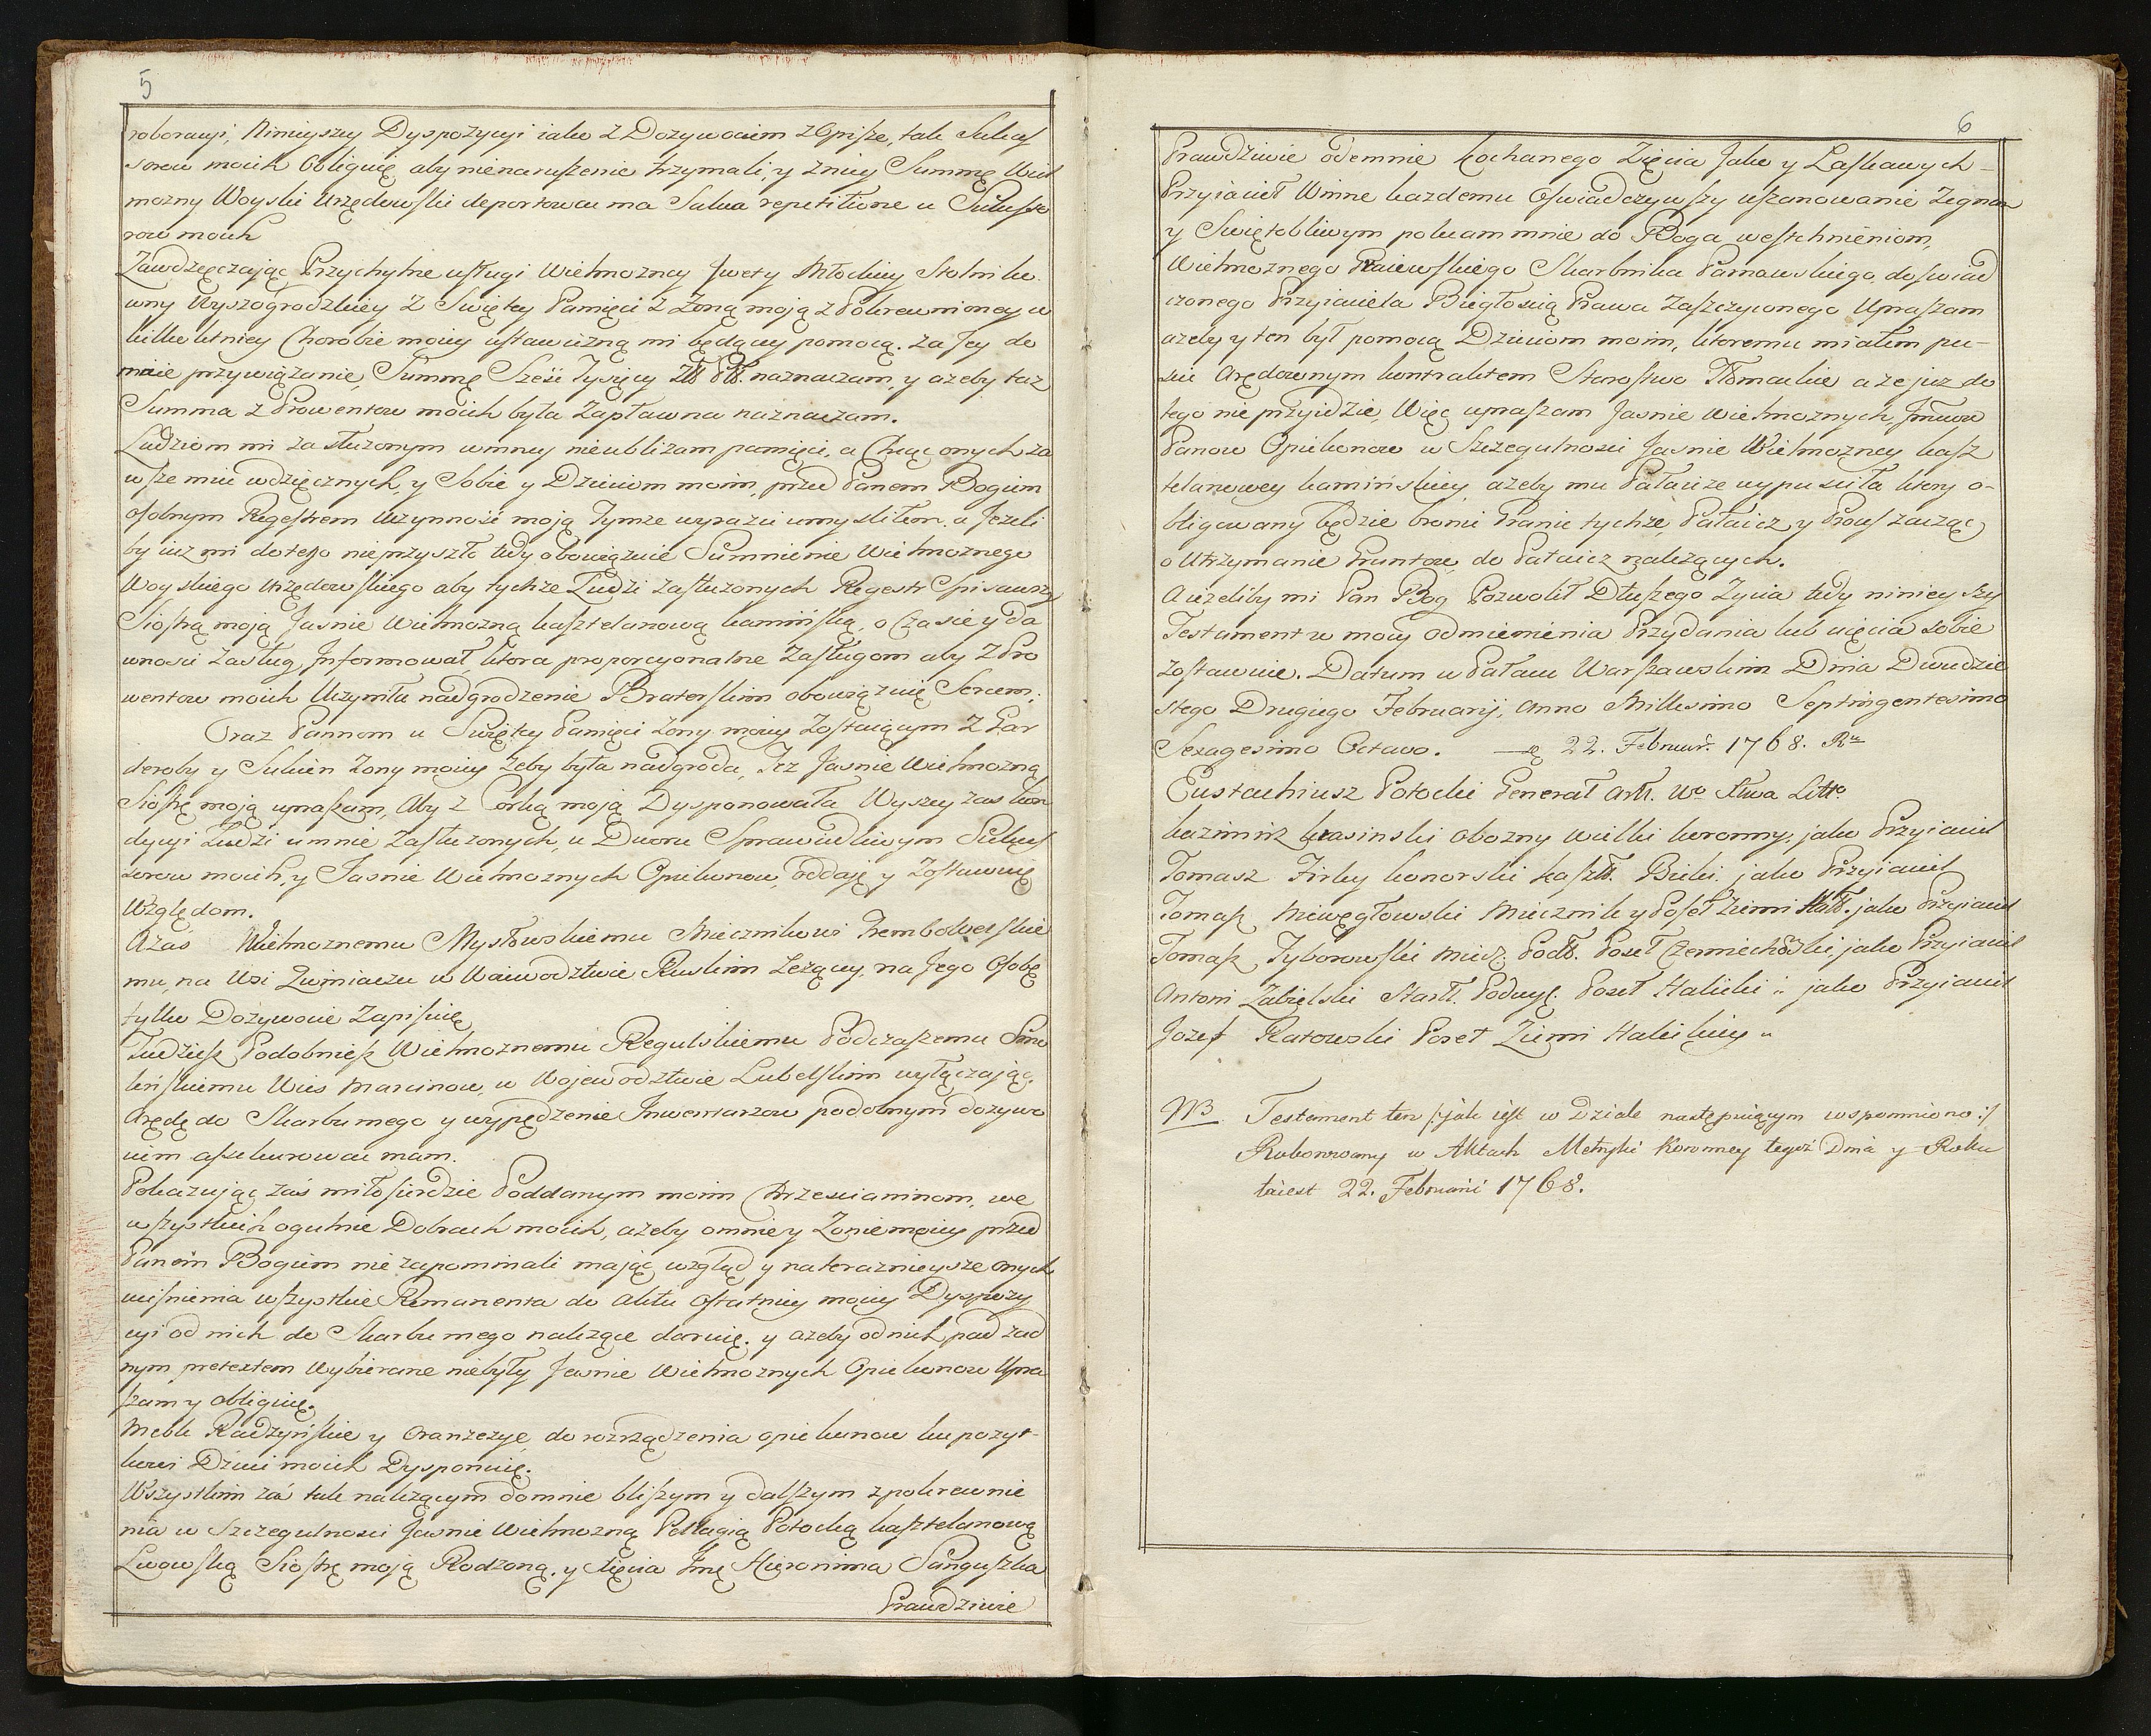 5
roboracyi, Ninieyszey Dyspozycyi iako z Dozywociem z Opisze, tak Sukces
sorow moich Obliguię aby nienaruszenie trzymali, y z niey Summę Wiel
mozny Woyski Urzędowski deportowac ma Salva repetitione u Sukcesso
row moich
Zawdzęczaiąc Przychylne usługi Wielmozney Iwety Młockiey Stolniko
wny Wyszogrodzkiey z Swiętey Pamięci z Zoną moią z Pokrewnioney w
kilko letniey Chorobie moiey ustawiczną mi będącey pomocą. Za Jey do
mnie przywiązanie, Summę Szesc Tysięcy Złł Płł. naznaczam, y azeby taz
Summa z Prowentow moich była Zapławna naznaczam.
Ludziom mi zasłuzonym winney nieublizam pamięci, a Chcąc onych za
wsze miec wdzięcznych, y Sobie y Dzieciom moim, przed Panem Bogiem
osobnym Regestrem Uczynnosc moią Tymze wyrazic umysliłem. a Jezeli
by iuz mi do tego nieprzyszło tedy obowiązuie Sumnienie Wielmoznego
Woyskiego Urzędowskiego aby tychze Ludzi zasłuzonych Regestr Spisawszy
Siostrą moią Jasnie Wielmozną kasztelanową kamińską, o Czasie y da
wnosci Zasług Informował ktora proporcyonalne Zasługom aby z Pro
wentow moich Uczyniła nadgrodzenie Braterskim obowiązuię Sercem.
Oraz Pannom u Swiętey Pamięci Zony moiey Zostaiącym z Gar
deroby y Sukien Zony moiey Zeby była nadgroda, Tez Jasnie Wielmozną
Siostrę moią upraszam, Aby z Corką moią Dysponowała Wyszey zas kon
dycyi Ludzi u mnie Zasłuzonych, u Dworu Sprawiedliwym Sukces
sorow moich, y Jasnie Wielmoznych Opiekunow, oddaię y Zostawuię
Względom.
Azas Wielmoznemu Mysłowskiemu Miecznikowi Trembowelskie
mu, na Wsi Zwiniaczu w Waiwodztwie Ruskim Lezącey, na Jego Osobę
tylko Dozywocie Zapisuię
Tudziesz Podobniesz Wielmoznemu Regulskiemu Podczaszemu Smo
leńskiemu Wies Marcinow, w Wojewodztwie Lubelskim wyłączaiąc.
Arędę do Skarbu mego y wypędzenie Inwentarzow podobnym dozywo
ciem assekurowac mam.
Pokazuiąc zaś miłosierdzie Poddanym moim Chrzescianinom, we
wszystkich ogulnie Dobrach moich, azeby o mnie y Zonie moiey przed
Panem Bogiem nie zapominali maiąc wzgląd y na teraznieysze onych
ucisnienia wszystkie Remanenta do Aktu Ostatniey moiey Dyspozy
cyi od nich do Skarbu mego nalezące daruię. y azeby od nich pod zad
nym pretextem Wybierane niebyły Jasnie Wielmoznych Opiekunow Upra
szam y obliguię.
Meble Radzyńskie y Oranzeryę, do rozrządzenia opiekunow ku pozyt-
kowi Dzieci moich Dysponuię.
Wszystkim zas tak nalezącym do mnie bliszym y dalszym z pokrewnie
nia w Szczegulnosci Jasnie Wielmozną Pellagią Potocką kasztelanową
Lwowską Siostrę moią Rodzoną. y Xięcia Jmę Hieronima Sanguszka
Prawdziwie
6
Prawdziwie odemnie kochanego Zięcia Jako y Laskawych
Przyiacieł Winne kazdemu Oswiadczywszy uszanowanie Zegnam
y Swiętobliwym polecam mnie do Boga westchnieniom,
Wielmoznego Kraiewskiego Skarbnika Parnawskiego, doswiad
czonego Przyiaciela Biegłoscią Prawa Zaszczyconego Upraszam
azeby y ten był pomocą Dzieciom moim, ktoremu miałem pu-
scic Arędownym kontraktem Starostwo Tłomackie a ze juz do
tego nie przyidzie, Więc upraszam Jasnie Wielmoznych Jmciow
Panow Opiekunow w Szczegulnosci Jasnie Wielmozney kasz
telanowey kamińskiey, azeby mu Pałaicze wypusciła ktory o-
bligowany będzie bronic Granic tychze, Pałaicz y Proces zacząc,
o Utrzymanie Gruntow, do Pałaicz nalezących.
A iezeliby mi Pan Bog Pozwolił Dłuszego Zycia tedy ninieyszy
Testament w mocy odmienienia Przydania lub uięcia sobie
zostawuie. Datum w Pałacu Warszawskim Dnia Dwudzie
stego Drugiego Februarij, Anno Millesimo Septingentesimo
Sexagesimo Octavo. 22. Februar. 1768. Ru
Eustachiusz Potocki Generał Artt. Wo Xtwa Litto
kazimirz krasinski obozny wielki koronny, jako Przyiaciel
Tomasz Zirky konorski kaszt. Bieki. jako Przyiaciel
Tomasz Niewęgłowski Miecznik y Poseł Ziemi Hall. jako Przyiaciel
Tomasz Tyborowski Miecz. Podł. Poseł Czerniechowski, jako Przyiaciel
Antoni Zabielski Skarb. Podwys. Poseł Halicki jako Przyiaciel
Jozef Ratowski Poseł Ziemi Halickiey
NB Testament ten /: jak iest w Dziale następuiącym wspomniono :/
Roborowany w Aktach Metryki Koronney tegoż Dnia y Roku
to iest 22. Februarii 1768.